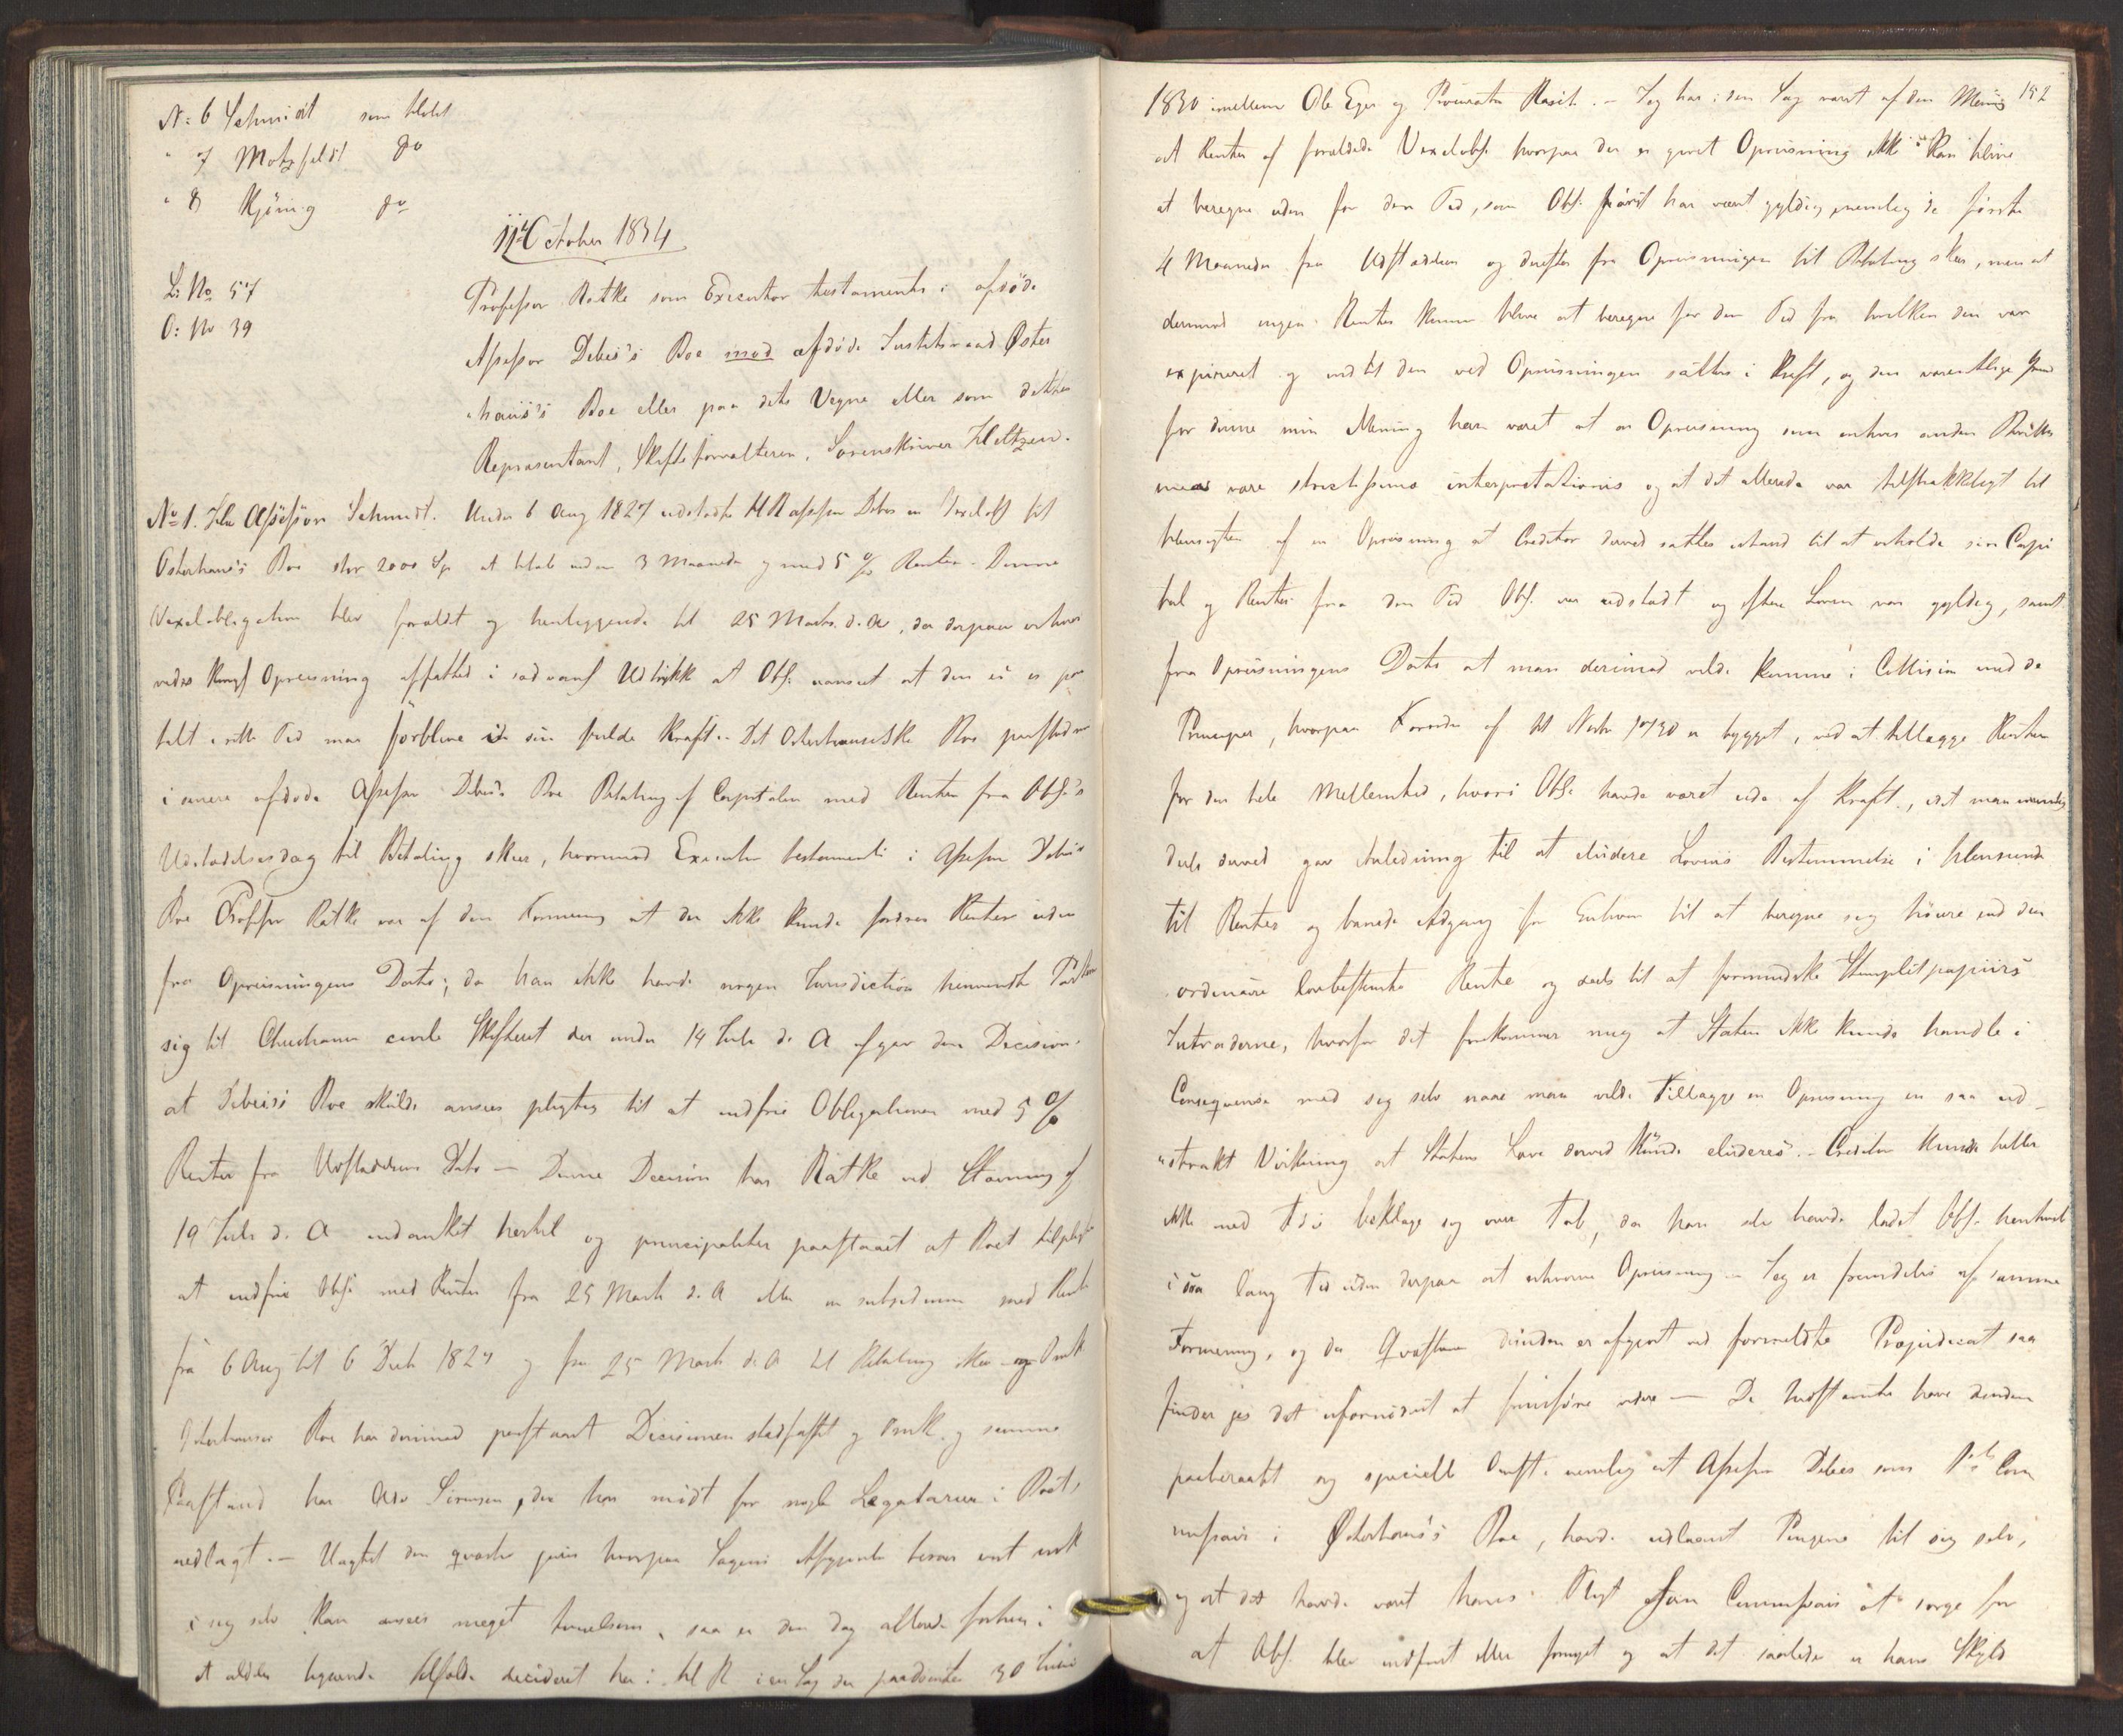 N: 6 Schmidt som Holst
" 7 Motzfeldt do
" 8 Kjöning do
11 October 1834
L: No 57
O: No 39
Professor Ratke som Executor testamenti i afdöde
Assessor Debes's Boe mod afdöde Justitsraad Öster
haus's Boe eller paa dets Vegne eller som dettes
Repræsentant, Skifteforvalteren, Sorenskriver Heltzen.
No 1. Hr Assessor Schmidt. Under 6 Aug 1827 udstædte HRassessor Debes en Vexelobl til
Osterhaus's Boe stor 2000 Sp at betale inden 3 Maaneder og med 5 % Renter. Denne
Vexelobligation blev forældt og henliggende til 25 Marts d. A, da derpaa erhver
vedes Kongl Opreisning affattet i saadant Udtrykk at Obl. uanseet at den ei er paa
talt i rette Tid maa forblive i sin fulde Kraft. Det Osterhausiske Boe paastod nu
i senere afdöde Assessor Debes's Boe Betaling af Capitalen med Renter fra Obl.'s
Udstædelsesdag til Betaling skeer, hvorimod Executor testamenti i Assessor Debes's
Boe Professor Ratke var af den Formening at der ikke kunde fordres Renter uden
fra Opreisningens Dato; da han ikke havde nogen Jurisdiction henvendte Parterne
sig til Christiania civile Skifteret der under 14 Juli d. A afgav den Decision
at Debes's Boe skulde ansees pligtig til at indfrie Obligationen med 5 %
Renter fra Udstædelsens Dato — Denne Decision har Ratke ved Stævning af
19 Juli d. A indanket hertil og principaliter paastaaet at Boet tilpligtes
at indfrie Obl. med Renter fra 25 Marts d. A eller in subsidium med Renter
fra 6 Aug til 6 Decb 1827 og fra 25 Marts d. A til Betaling skeer og Omk
Osterhauses Boe har derimod paastaaet Decisionen stadfæstet og Omk. og samme
Paastand har Adv Sörensen, der har mödt for nogle Legatarier i Boet,
nedlagt. — Uagtet den qvæstio juris hvorpaa Sagens Afgjörelse beroer vist nok
i sig selv kan ansees meget tvivlsom, saa er den dog allerede forhen i
et aldeles lignende Tilfælde decideret her i H R i en Sag der paadömtes 30 Juni
192
1830 imellem Ole Eger og Procurator Rasch. — Jeg har i den Sag været af den Mening
at Renter af forældede Vexelobl. hvorpaa der er givet Opreisning ikke kan blive
at beregne uden for den Tid, som Obl. först har været gyldig, nemlig de förste
4 Maaneder fra Udstædelsen og derefter fra Opreisningen til Betaling skeer, men at
derimod ingen Renter kunne blive at beregne for den Tid fra hvilken den var
expireret og indtil den ved Opreisningen sættes i Kraft, og den væsentlige Grund
for denne min Mening har været at en Opreisning som enhver anden Bevilling
maa være strictissimæ interpretationis og at det allerede var tilstrækkeligt til
Hensigten af en Opreisning at Creditor derved sattes istand til at erholde sin Capi
tal og Renter fra den Tid Obl. var udstædt og efter Loven var gyldig, samt
fra Opreisningens Dato at man derimod vilde komme i Collision med de
Principer, hvorpaa Forordn af 11 Novbr 1730 er bygget, ved at tillægge Renter
for den hele Mellemtid, hvori Obl. havde været ude af Kraft, idet man nemlig
deels derved gav Anledning til at eludere Lovens Bestemmelse i Henseende
til Renter og banede Adgang for Enhver til at beregne sig höiere end den
ordinaire lovbestemte Rente og deels til at formindske Stempletpapiirs
Intraderne, hvorfor det forekommer mig at Staten ikke kunde handle i
Conseqvense med sig selv naar man vilde tillægge en Opreisning en saa ud
strakt Virkning at Statens Love derved kunde eluderes. — Creditor kunde heller
ikke med Föie beklage sig over Tab, da han selv havde ladet Obl. henhvile
i saa lang Tid uden derpaa at erhverve Opreisning — Jeg er fremdeles af samme
Formening, og da Qvæstionen desuden er afgjort ved formeldte Præjudicat saa
finder jeg det ufornödent at fremföre videre — De Indstævnte have desuden
paaberaabt sig specielle Omst. nemlig at Assessor Debes som Com
missair i Österhaus's Boe, havde udlaant Pengene til sig selv,
og at det havde været hans Pligt som Commissair at sorge for
at Obl. blev indfriet eller fornyet og at det saaledes er hans Skyld